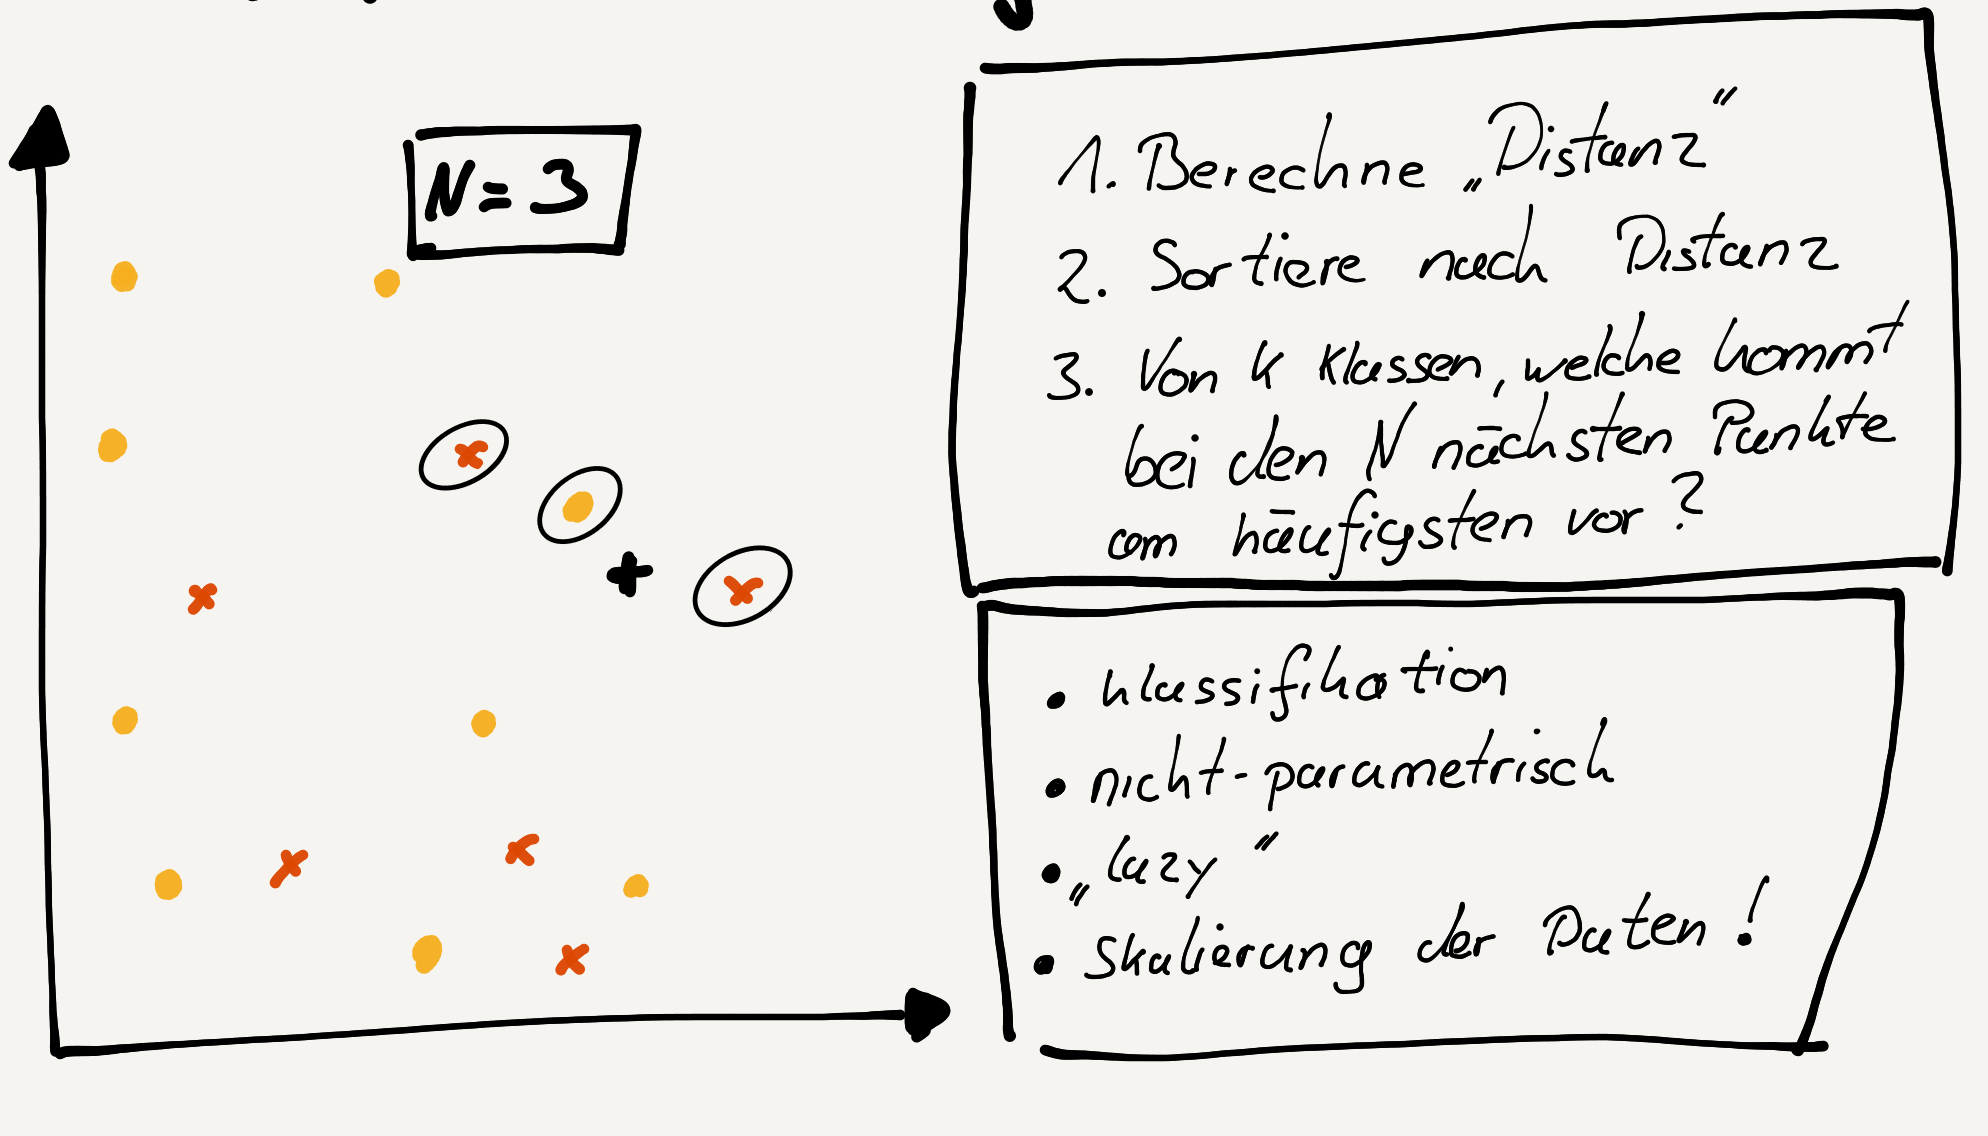 N = 3
1. Berechne „Distanz"
2. Sortiere nach Distanz
3. Von K Klassen, welche kommt
bei den N nächsten Punkte
am häufigsten vor?
• Klassifikation
• nicht-parametrisch
• „lazy"
• Skalierung der Daten!